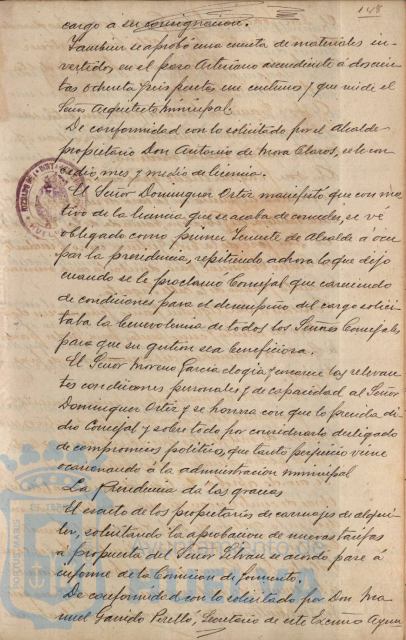 148
cargo á su consignacion.
Tambien se aprobó una cuenta de materiales in-
vertidos en el pozo Artesiano ascendiente á doscien-
tas ochenta y seis pesetas cinc centimos y que rinde el
Señor Arquitecto Municipal.
De conformidad con lo solicitado por el Alcalde
propietario Don Antonio de Mora Claros, se le con-
cedió mes y medio de licencia.
El Señor Dominguez Ortiz manifestó que con mo-
tivo de la licencia que se acaba de conceder, se vé
obligado como primer Teniente de Alcalde á ocu-
par la presidencia, repitiendo ahora lo que dijo
cuando se le proclamó Concejal que careciendo
de condiciones para el desempeño del cargo solici-
taba la benevolencia de todos los Señores Concejales
para que su gestion sea beneficiosa.
El Señor Moreno Garcia elogia y enumera las relevan-
tes condiciones personales y de capacidad al Señor
Dominguez Ortiz y se honra con que lo presida di-
cho Concejal y sobre todo por considerarlo desligado
de compromisos politicos, que tanto perjuicio viene
ocasionando á la administracion municipal
La Presidencia dá las gracias
El escrito de los propietarios de carruajes de alqui-
ler, solicitando la aprobacion de nuevas tarifas
á propuesta del Señor se acordó pase á
informe de la Comision de Fomento.
De conformidad con lo solicitado por Don Ma-
nuel Garrido Perelló, Secretario de este Excmo Ayun